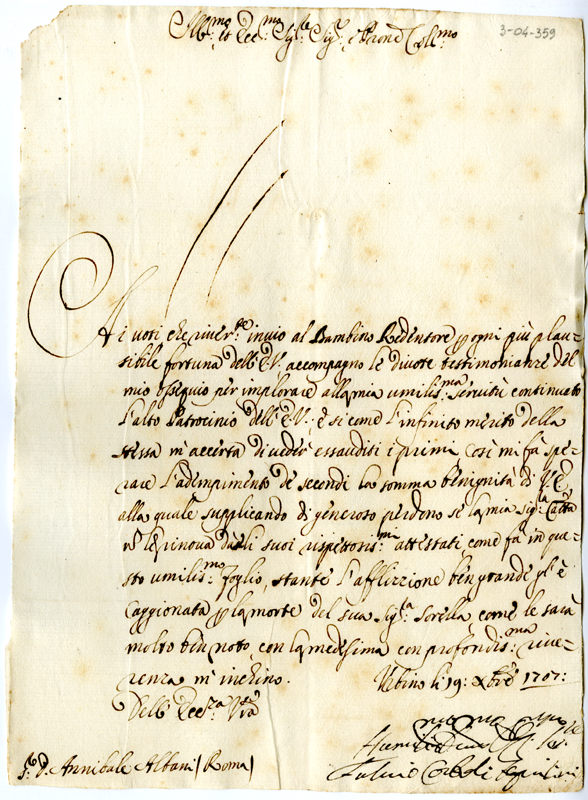 3-04-359
Ill:mo et Ecc:mo Sig:r Sig:r e Prone Coll:mo
Ai voti che river:te invio al Bambino Redentore p ogni più plau-
sibile fortuna dell'E.V. accompagno le divote testimonianze del
mio ossequio per implorare alla mia umilis:ma servitù continuato
l'alto Patrocinio dell'E.V.; e si come l'infinito merito della
stessa m'accerta di veder essauditi i primi così mi fà spe-
rare l'adempimento de secondi la somma benignità di V.E.
alla quale supplicando di generoso perdono se la mia Sig:ra
le rinova gli suoi rispettosis:mi attestati, come fà in que-
sto umilis:mo foglio, stante l'afflizzione ben grande gl'è
caggionata p la morte del sua Sig:ra Sorella come le sarà
molto ben noto, con la medesima con profondis:ma rive-
renza m'inchino.
Urbino li 19: Xbre 1707:
Dell'Ecc:za V:ra
S:r D. Annibale Albani (Roma)
Fulvio